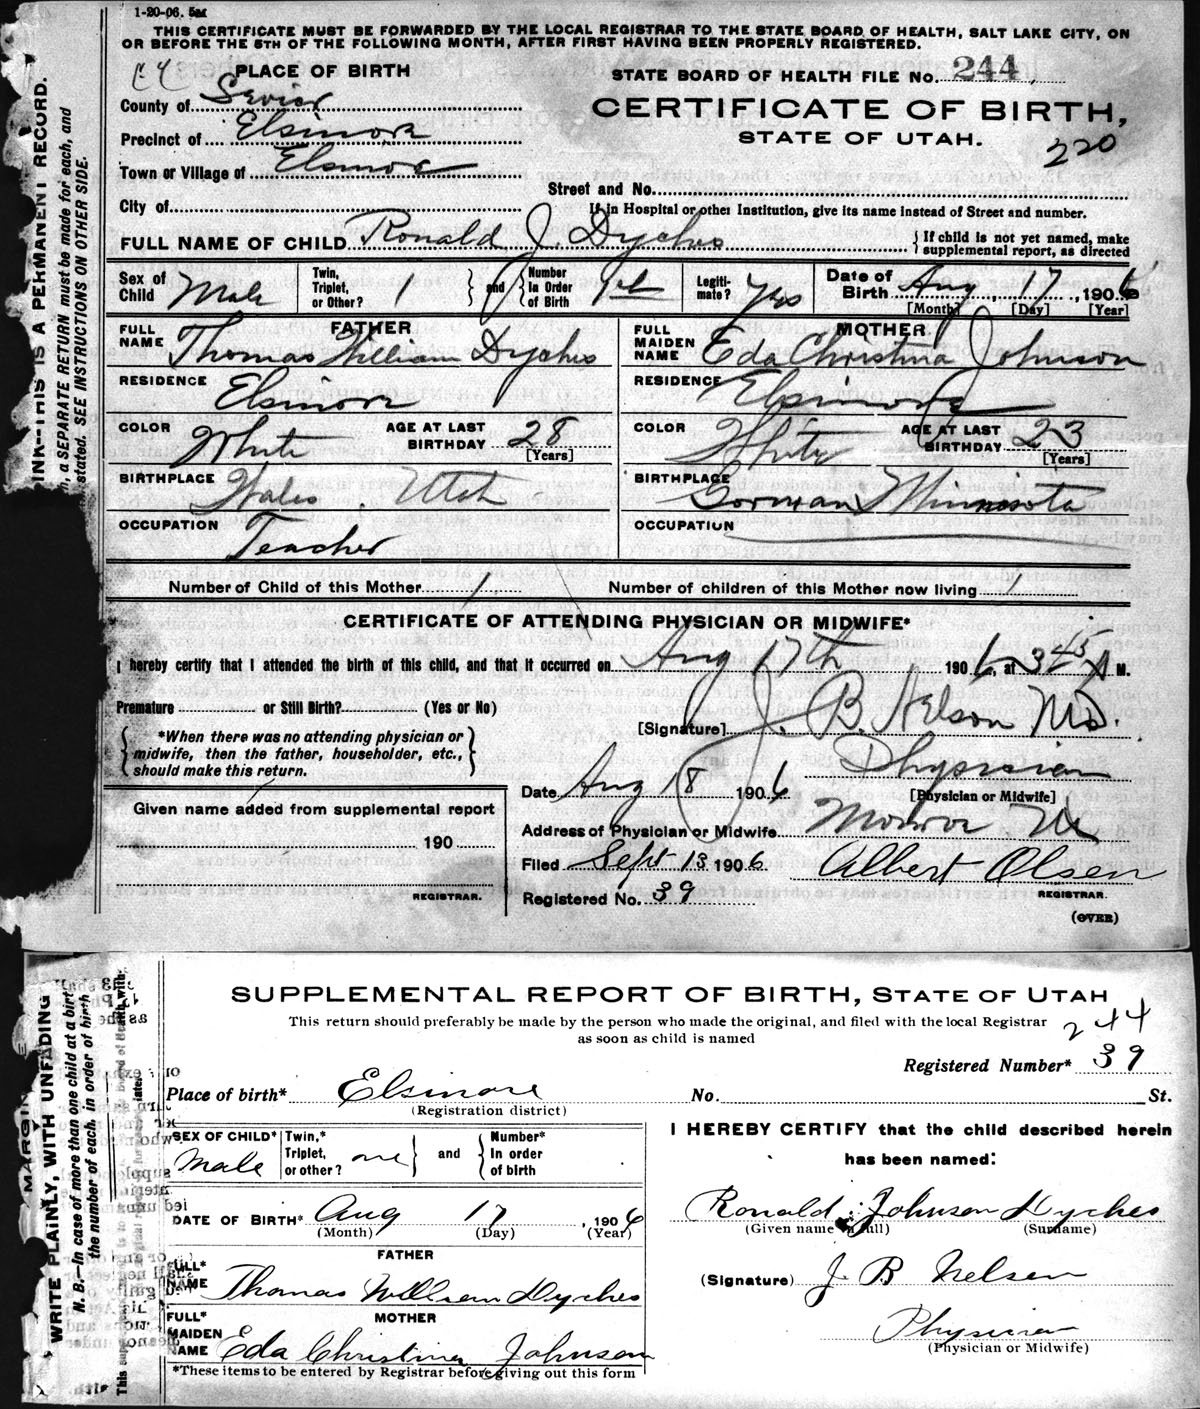 1-20-06. 5M
THIS CERTIFICATE MUST BE FORWARDED BY THE LOCAL REGISTRAR TO THE STATE BOARD OF HEALTH, SALT LAKE CITY, ON
OR BEFORE THE 5TH OF THE FOLLOWING MONTH, AFTER FIRST HAVING BEEN PROPERLY REGISTERED.
PLACE OF BIRTH
STATE BOARD OF HEALTH FILE NO. 244
County of Sevier
CERTIFICATE OF BIRTH,
Precinct of Elsinore
STATE OF UTAH.
220
Town or Village of Elsinore
Street and No.
City of
If in Hospital or other Institution, give its name instead of Street and number.
FULL NAME OF CHILD Ronald J. Dyches { If child is not yet named, make supplemental report, as directed
Sex of Child Male
Twin, Triplet, or Other? 1 } and { Number In Order of Birth 1st
Legitimate? Yes
Date of Birth Aug 17, 1906
[Month] [Day] [Year]
FATHER
FULL NAME Thomas William Dyches
MOTHER
FULL MAIDEN NAME Eda Christina Johnson
RESIDENCE Elsinore
RESIDENCE Elsinore
COLOR White AGE AT LAST BIRTHDAY 28 [Years]
COLOR White AGE AT LAST BIRTHDAY 23 [Years]
BIRTHPLACE Wales Utah
BIRTHPLACE Gorman Minnesota
OCCUPATION Teacher
OCCUPATION
Number of Child of this Mother 1
Number of children of this Mother now living 1
CERTIFICATE OF ATTENDING PHYSICIAN OR MIDWIFE*
I hereby certify that I attended the birth of this child, and that it occurred on Aug 17th 1906, at 3 45 A M.
Premature or Still Birth? (Yes or No)
[Signature] J. B. Nelson MD.
{ *When there was no attending physician or
midwife, then the father, householder, etc.,
should make this return. }
Physician
[Physician or Midwife]
Date Aug 18 1906
Given name added from supplemental report
190
REGISTRAR.
Address of Physician or Midwife Monroe Ut
Filed Sept 13 1906 Albert Olsen
REGISTRAR.
Registered No. 39
(OVER)
INK--THIS IS A PERMANENT RECORD.
, a SEPARATE RETURN must be made for each, and
stated. SEE INSTRUCTIONS ON OTHER SIDE.
SUPPLEMENTAL REPORT OF BIRTH, STATE OF UTAH
This return should preferably be made by the person who made the original, and filed with the local Registrar
as soon as child is named
244
Registered Number* 39
Place of birth* Elsinore No. St.
(Registration district)
SEX OF CHILD* Male
Twin,* Triplet, or other? one } and { Number* In order of birth
DATE OF BIRTH* Aug 17, 1906
(Month) (Day) (Year)
FATHER
FULL* NAME Thomas William Dyches
MOTHER
FULL* MAIDEN NAME Eda Christina Johnson
*These items to be entered by Registrar before giving out this form
I HEREBY CERTIFY that the child described herein
has been named:
Ronald Johnson Dyches
(Given name in full) (Surname)
(Signature) J B Nelson
Physician
(Physician or Midwife)
MARGIN
WRITE PLAINLY, WITH UNFADING
N. B.—In case of more than one child at a birth
the number of each, in order of birth